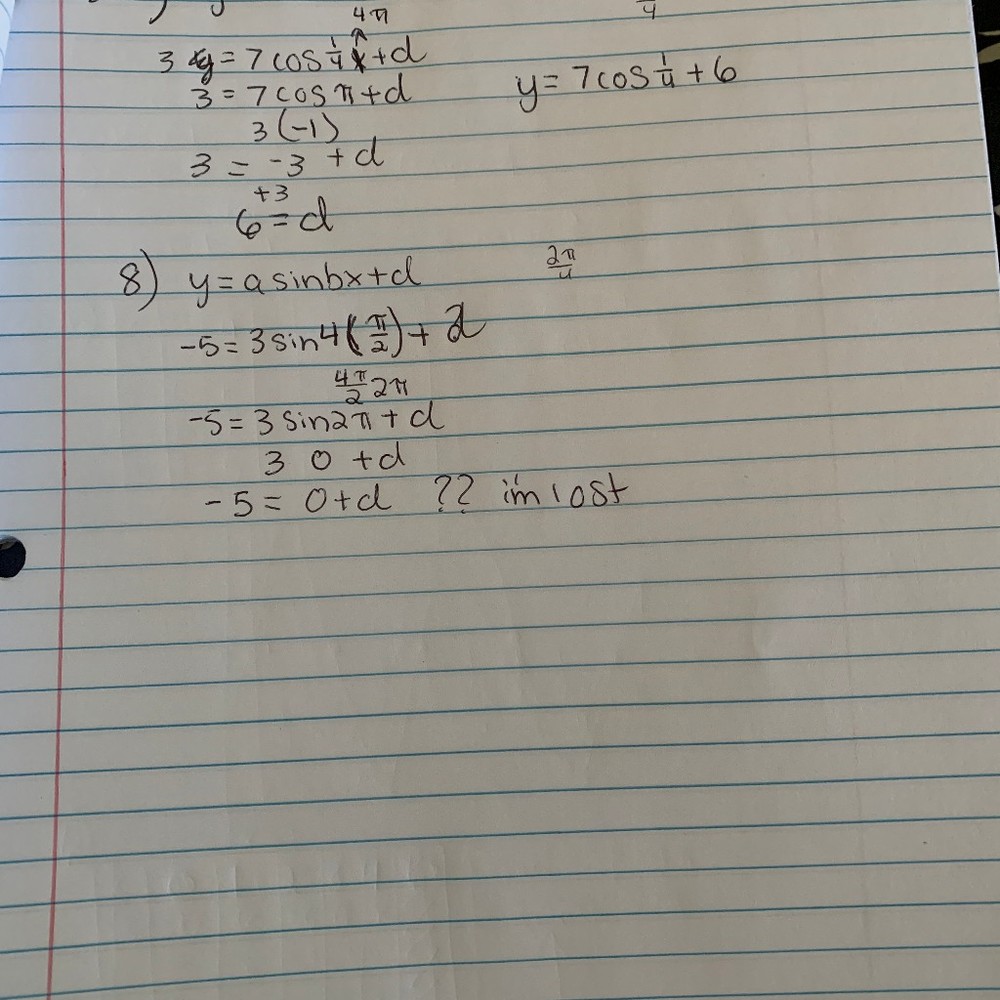 4π
4
3 y = 7 cos 1/4 x + d
3 = 7 cos π + d
y = 7 cos 1/4 + 6
3 (-1)
3 = -3 + d
+3
6 = d
8) y = a sin bx + d
2π/4
-5 = 3 sin 4 (π/2) + d
4π/2 2π
-5 = 3 sin 2π + d
3 0 + d
-5 = 0 + d ?? i'm lost